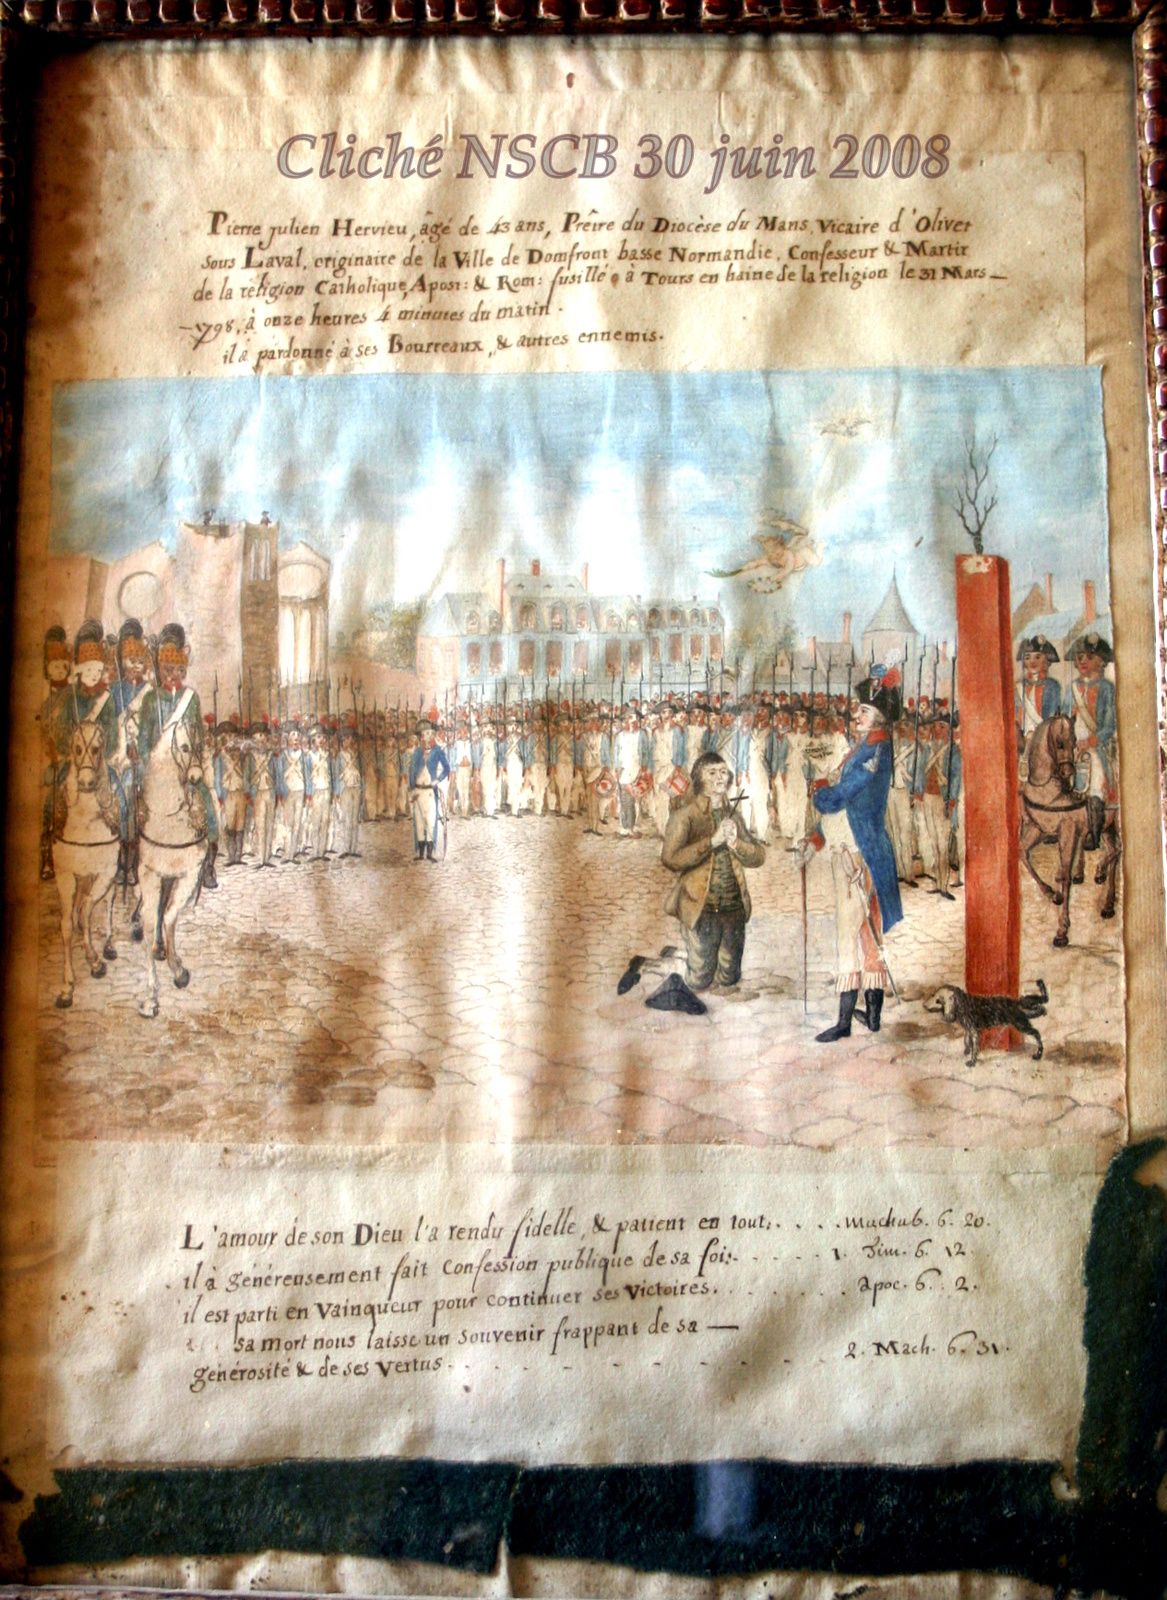 Cliché NSCB 30 juin 2008
Pierre Julien Hervieu, âgé de 43 ans, Prêtre du Diocèse du Mans, Vicaire d'Olivet
sous Laval, originaire de la Ville de Domfront basse Normandie, Confesseur & Martir
de la religion Catholique, Apost: & Rom: fusillé à Tours en haine de la religion le 31 Mars —
—1798, à onze heures 4 minutes du matin.
il à pardonné à ses Bourreaux, & autres ennemis.
L'amour de son Dieu l'a rendu fidelle, & patient en tout. . . . Machab. 6. 20.
il à généreusement fait Confession publique de sa foi: - - - - - 1. Tim. 6. 12.
il est parti en Vainqueur pour continuer ses Victoires. . . . . . . . Apoc. 6. 2.
sa mort nous laisse un souvenir frappant de sa —
générosité & de ses Vertus. - - - - - - - - - 2. Mach. 6. 31.